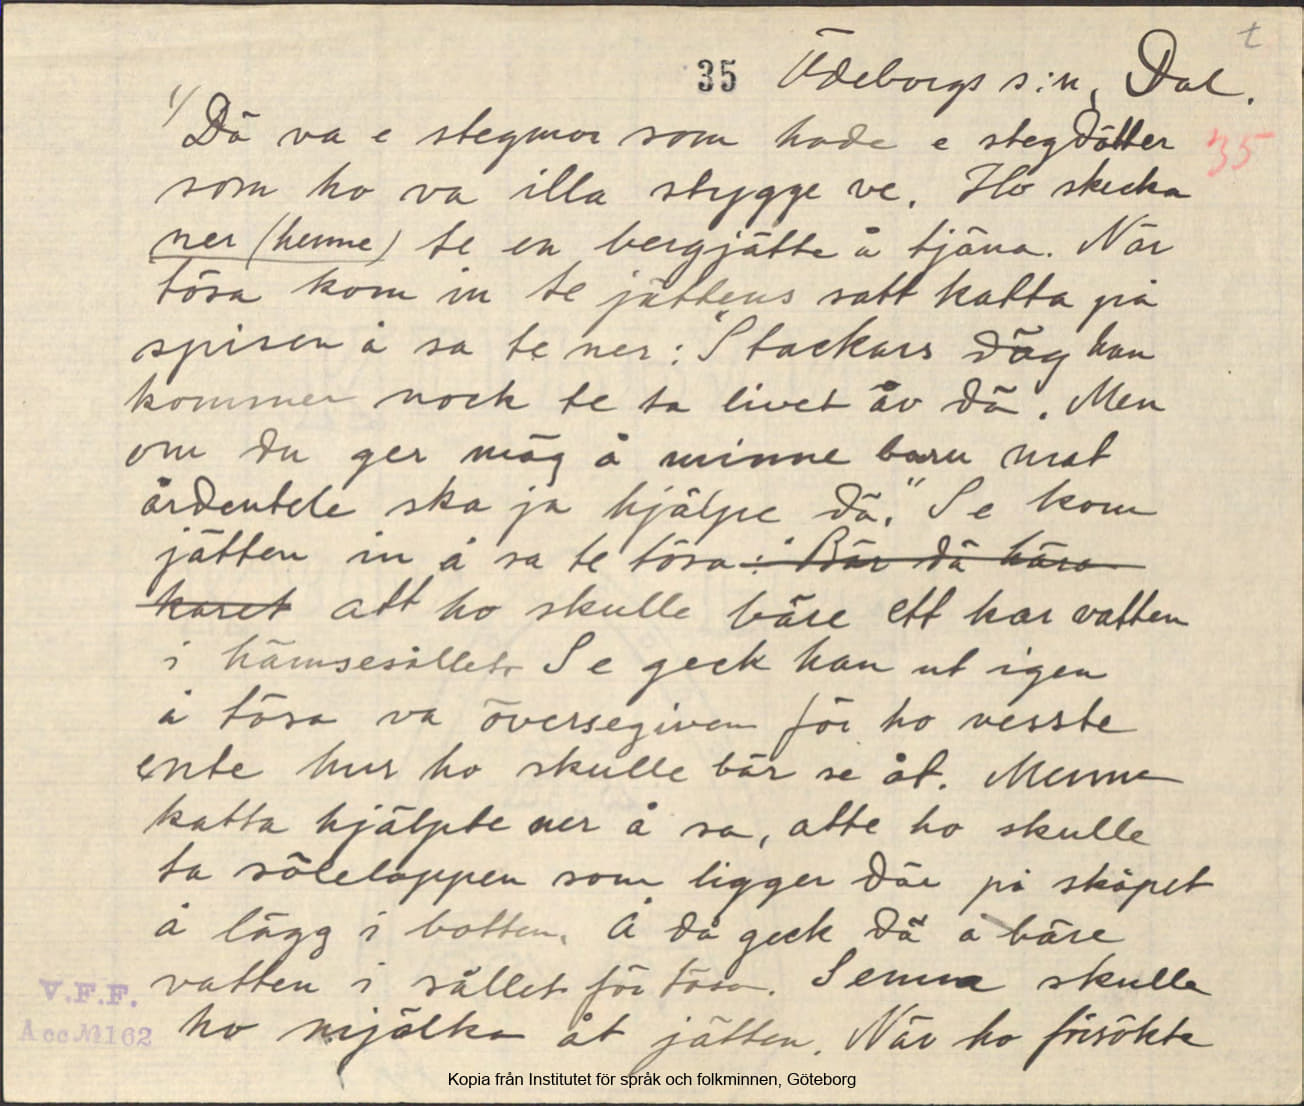 t
35 Ödeborgs s:n, Dal.
1/ Dä va e stegmor som hade e stegdötter 35
som ho va illa stygge ve. Ho skecka
ner (henne) te en bergjätte å tjäna. När
tösa kom in te jättens satt katta på
spisen å sa te ner: "Stackars däg han
kommer nock te ta livet åv dä. Men
om du ger mäg å minne barn mat
årdentele ska ja hjälpe dä." Se kom
jätten in å sa te tösa: "Bär dä hära
karet att ho skulle bäre ett kar vatten
i hämsesållet. Se geck han ut igen
å tösa va översegiven för ho vesste
ente hur ho skulle bär se åt. Menne
katta hjälpte ner å sa, atte ho skulle
ta söleloppen som ligger där på skåpet
å lägg i botten. Å då geck dä å bäre
vatten i sållet för tösa. Senna skulle
ho mjölka åt jätten. När ho försökte
V.F.F.
Acc. № 162
Kopia från Institutet för språk och folkminnen, Göteborg